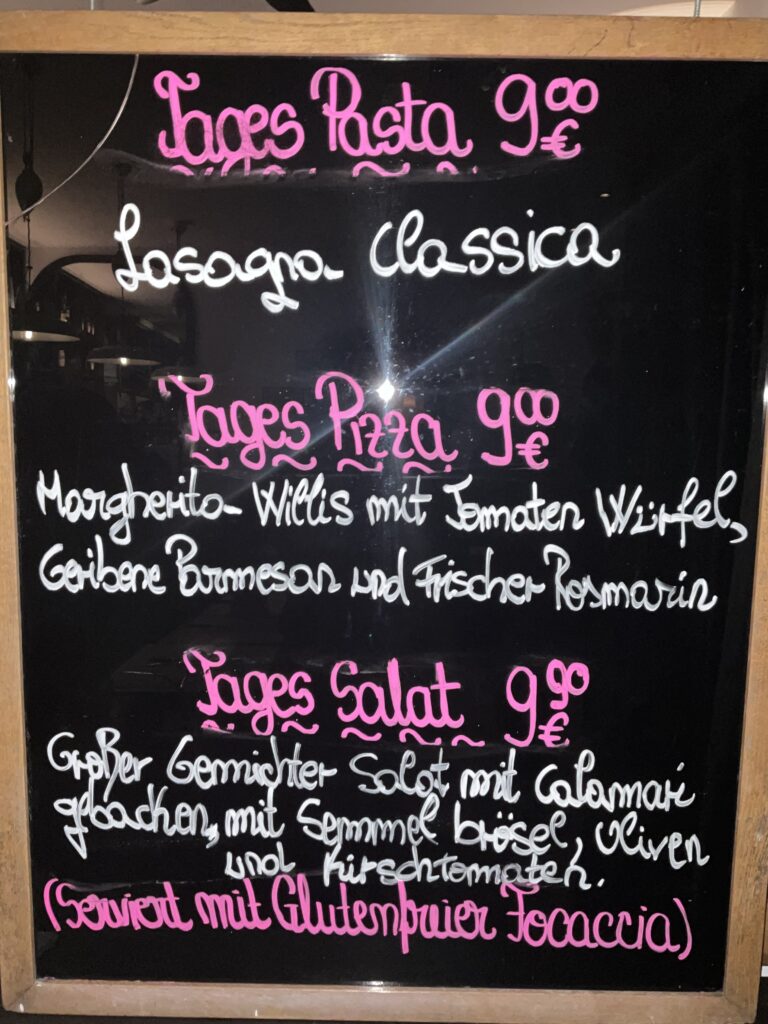 Tages Pasta 9⁰⁰ €
Lasagna Classica
Tages Pizza 9⁰⁰ €
Margherita Willis mit Tomaten Würfel,
Geribene Parmesan und Frischer Rosmarin
Tages Salat 9⁹⁰ €
Großer Gemichter Salat mit Calamari
gebacken, mit Semmel brösel, Oliven
und Kirschtomaten.
(Serviert mit Glutenfreier Focaccia)